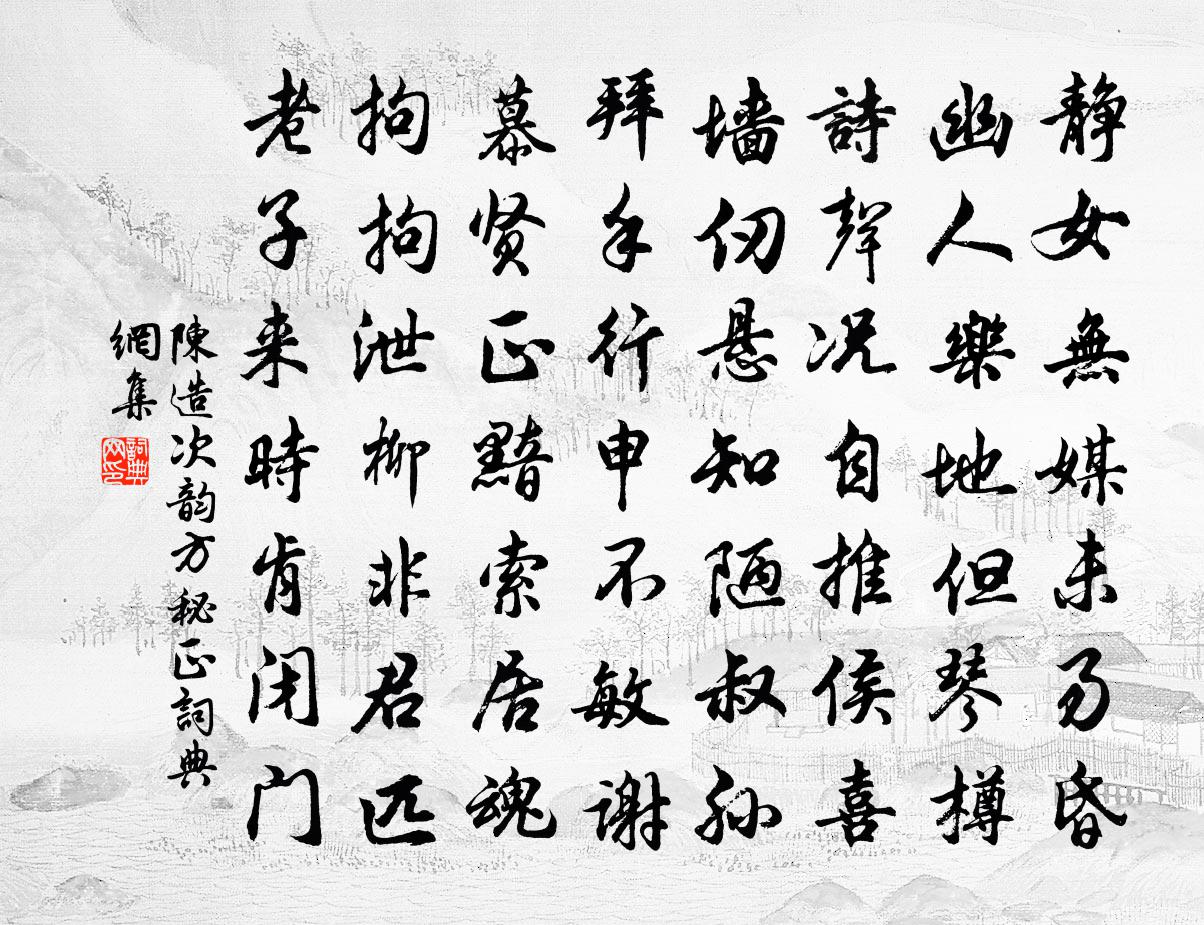 静女無媒未易昏
幽人樂地但琴樽
詩聲况自推侯喜
墙仞悬知陋叔孙
拜手行申不敏谢
慕贤正黯索居魂
拘拘泄柳非君匹
老子来時肯闭门
陳造次韵方秘正詞典
網集
詞典网印